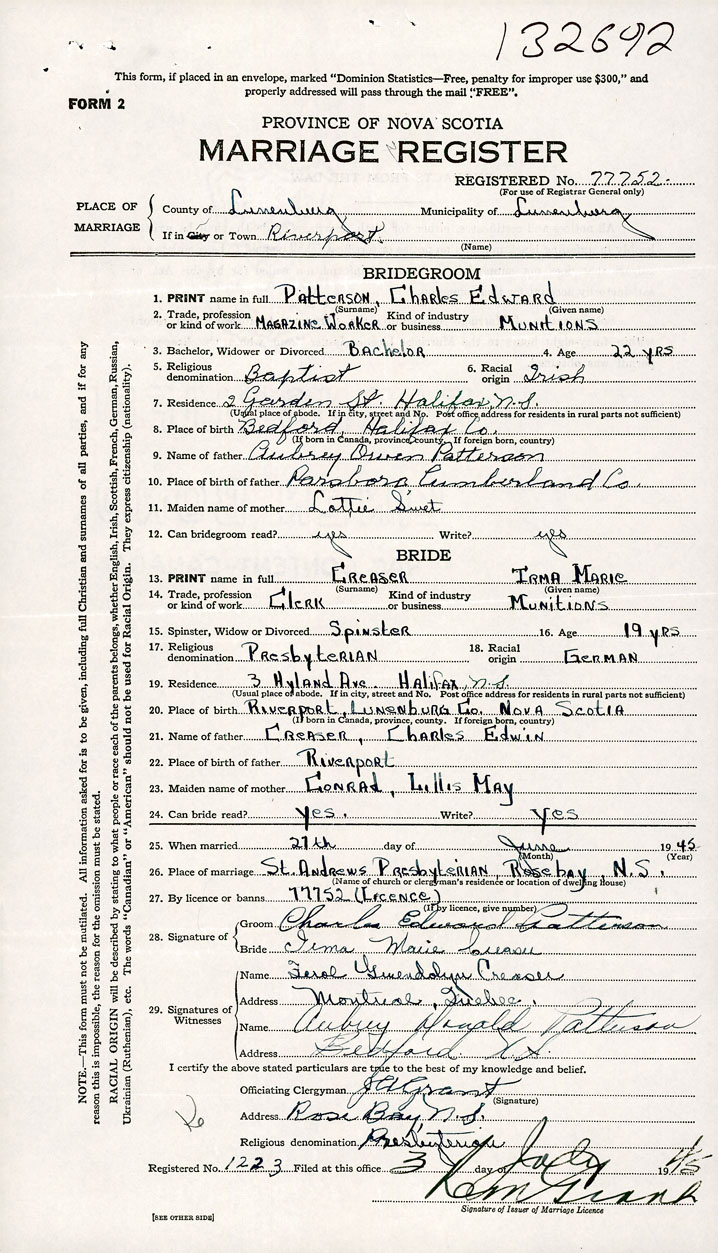 132692
This form, if placed in an envelope, marked "Dominion Statistics—Free, penalty for improper use $300," and
properly addressed will pass through the mail "FREE".
FORM 2
PROVINCE OF NOVA SCOTIA
MARRIAGE REGISTER
REGISTERED No. 77752
(For use of Registrar General only)
PLACE OF MARRIAGE
County of Lunenburg Municipality of Lunenburg
If in City or Town Riverport
(Name)
BRIDEGROOM
1. PRINT name in full PATTERSON, CHARLES EDWARD
(Surname) (Given name)
2. Trade, profession or kind of work MAGAZINE WORKER Kind of industry or business MUNITIONS
3. Bachelor, Widower or Divorced BACHELOR 4. Age 22 YRS
5. Religious denomination Baptist 6. Racial origin Irish
7. Residence 2 Garden St. Halifax N.S.
(Usual place of abode. If in city, street and No. Post office address for residents in rural parts not sufficient)
8. Place of birth Bedford, Halifax Co.
(If born in Canada, province, county. If foreign born, country)
9. Name of father Aubrey Owen Patterson
10. Place of birth of father Parsboro Cumberland Co.
11. Maiden name of mother Lottie Swet
12. Can bridegroom read? yes Write? yes
BRIDE
13. PRINT name in full CREASER IRMA MARIE
(Surname) (Given name)
14. Trade, profession or kind of work CLERK Kind of industry or business MUNITIONS
15. Spinster, Widow or Divorced SPINSTER 16. Age 19 YRS
17. Religious denomination PRESBYTERIAN 18. Racial origin GERMAN
19. Residence 3 Hyland Ave. Halifax N.S.
(Usual place of abode. If in city, street and No. Post office address for residents in rural parts not sufficient)
20. Place of birth RIVERPORT, LUNENBURG Co. NOVA SCOTIA
(If born in Canada, province, county. If foreign born, country)
21. Name of father CREASER, CHARLES EDWIN
22. Place of birth of father RIVERPORT
23. Maiden name of mother CONRAD, LILLIS MAY
24. Can bride read? yes. Write? yes
25. When married 27th day of June 1945
(Month) (Year)
26. Place of marriage ST. ANDREWS PRESBYTERIAN, ROSEBAY, N.S.
(Name of church or clergyman's residence or location of dwelling house)
27. By licence or banns 77752 (LICENCE)
(If by licence, give number)
28. Signature of
Groom Charles Edward Patterson
Bride Irma Marie Creaser
29. Signatures of Witnesses
Name Ferol Gwendolyn Creaser
Address Montreal, Quebec.
Name Aubrey Donald Patterson
Address Bedford N.S.
I certify the above stated particulars are true to the best of my knowledge and belief.
Officiating Clergyman Grant
(Signature)
Address Rose Bay N.S.
Religious denomination Presbyterian
Registered No. 1223 Filed at this office 3 day of July 1945
Signature of Issuer of Marriage Licence
[SEE OTHER SIDE]
NOTE.—This form must not be mutilated. All information asked for is to be given, including full Christian and surnames of all parties, and if for any
reason this is impossible, the reason for the omission must be stated.
RACIAL ORIGIN will be described by stating to what people or race each of the parents belongs, whether English, Irish, Scottish, French, German, Russian,
Ukrainian (Ruthenian), etc. The words "Canadian" or "American" should not be used for Racial Origin. They express citizenship (nationality).